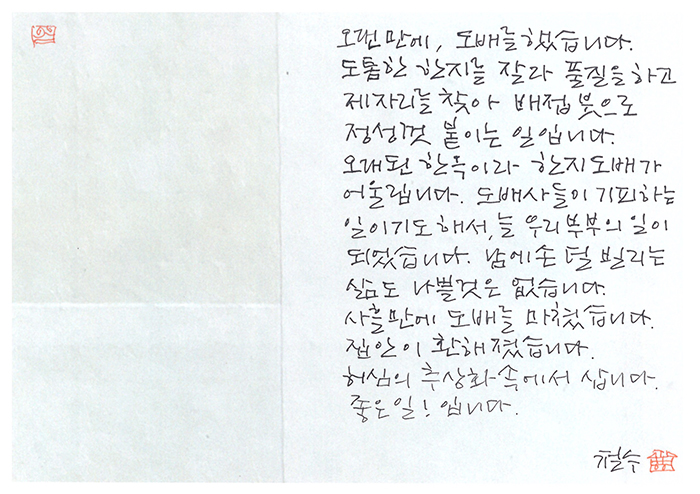 오랜만에, 도배를 했습니다.
도톰한 한지를 잘라 풀질을 하고
제자리를 찾아 배접 붓으로
정성껏 붙이는 일입니다.
오래된 한옥이라 한지도배가
어울립니다. 도배사들이 기피하는
일이기도 해서, 늘 우리 부부의 일이
되었습니다. 남에 손 덜 빌리는
삶도 나쁠것은 없습니다.
사흘만에 도배를 마쳤습니다.
집안이 환해졌습니다.
허심의 추상화 속에서 삽니다.
좋은일! 입니다.
철수